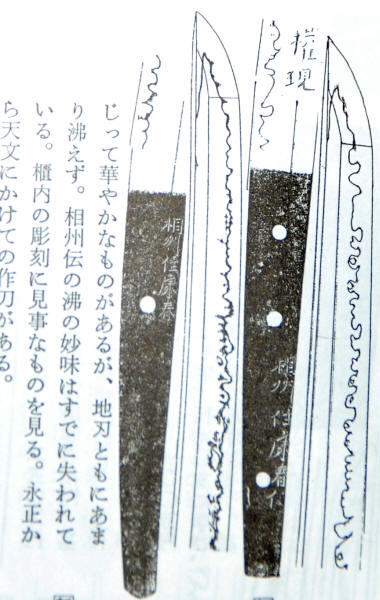 権現
相州住康春作
相州住康春
じって華やかなものがあるが、地刃ともにあま
り沸えず。相州伝の沸の妙味はすでに失われて
いる。櫃内の彫刻に見事なものを見る。永正か
ら天文にかけての作刀がある。